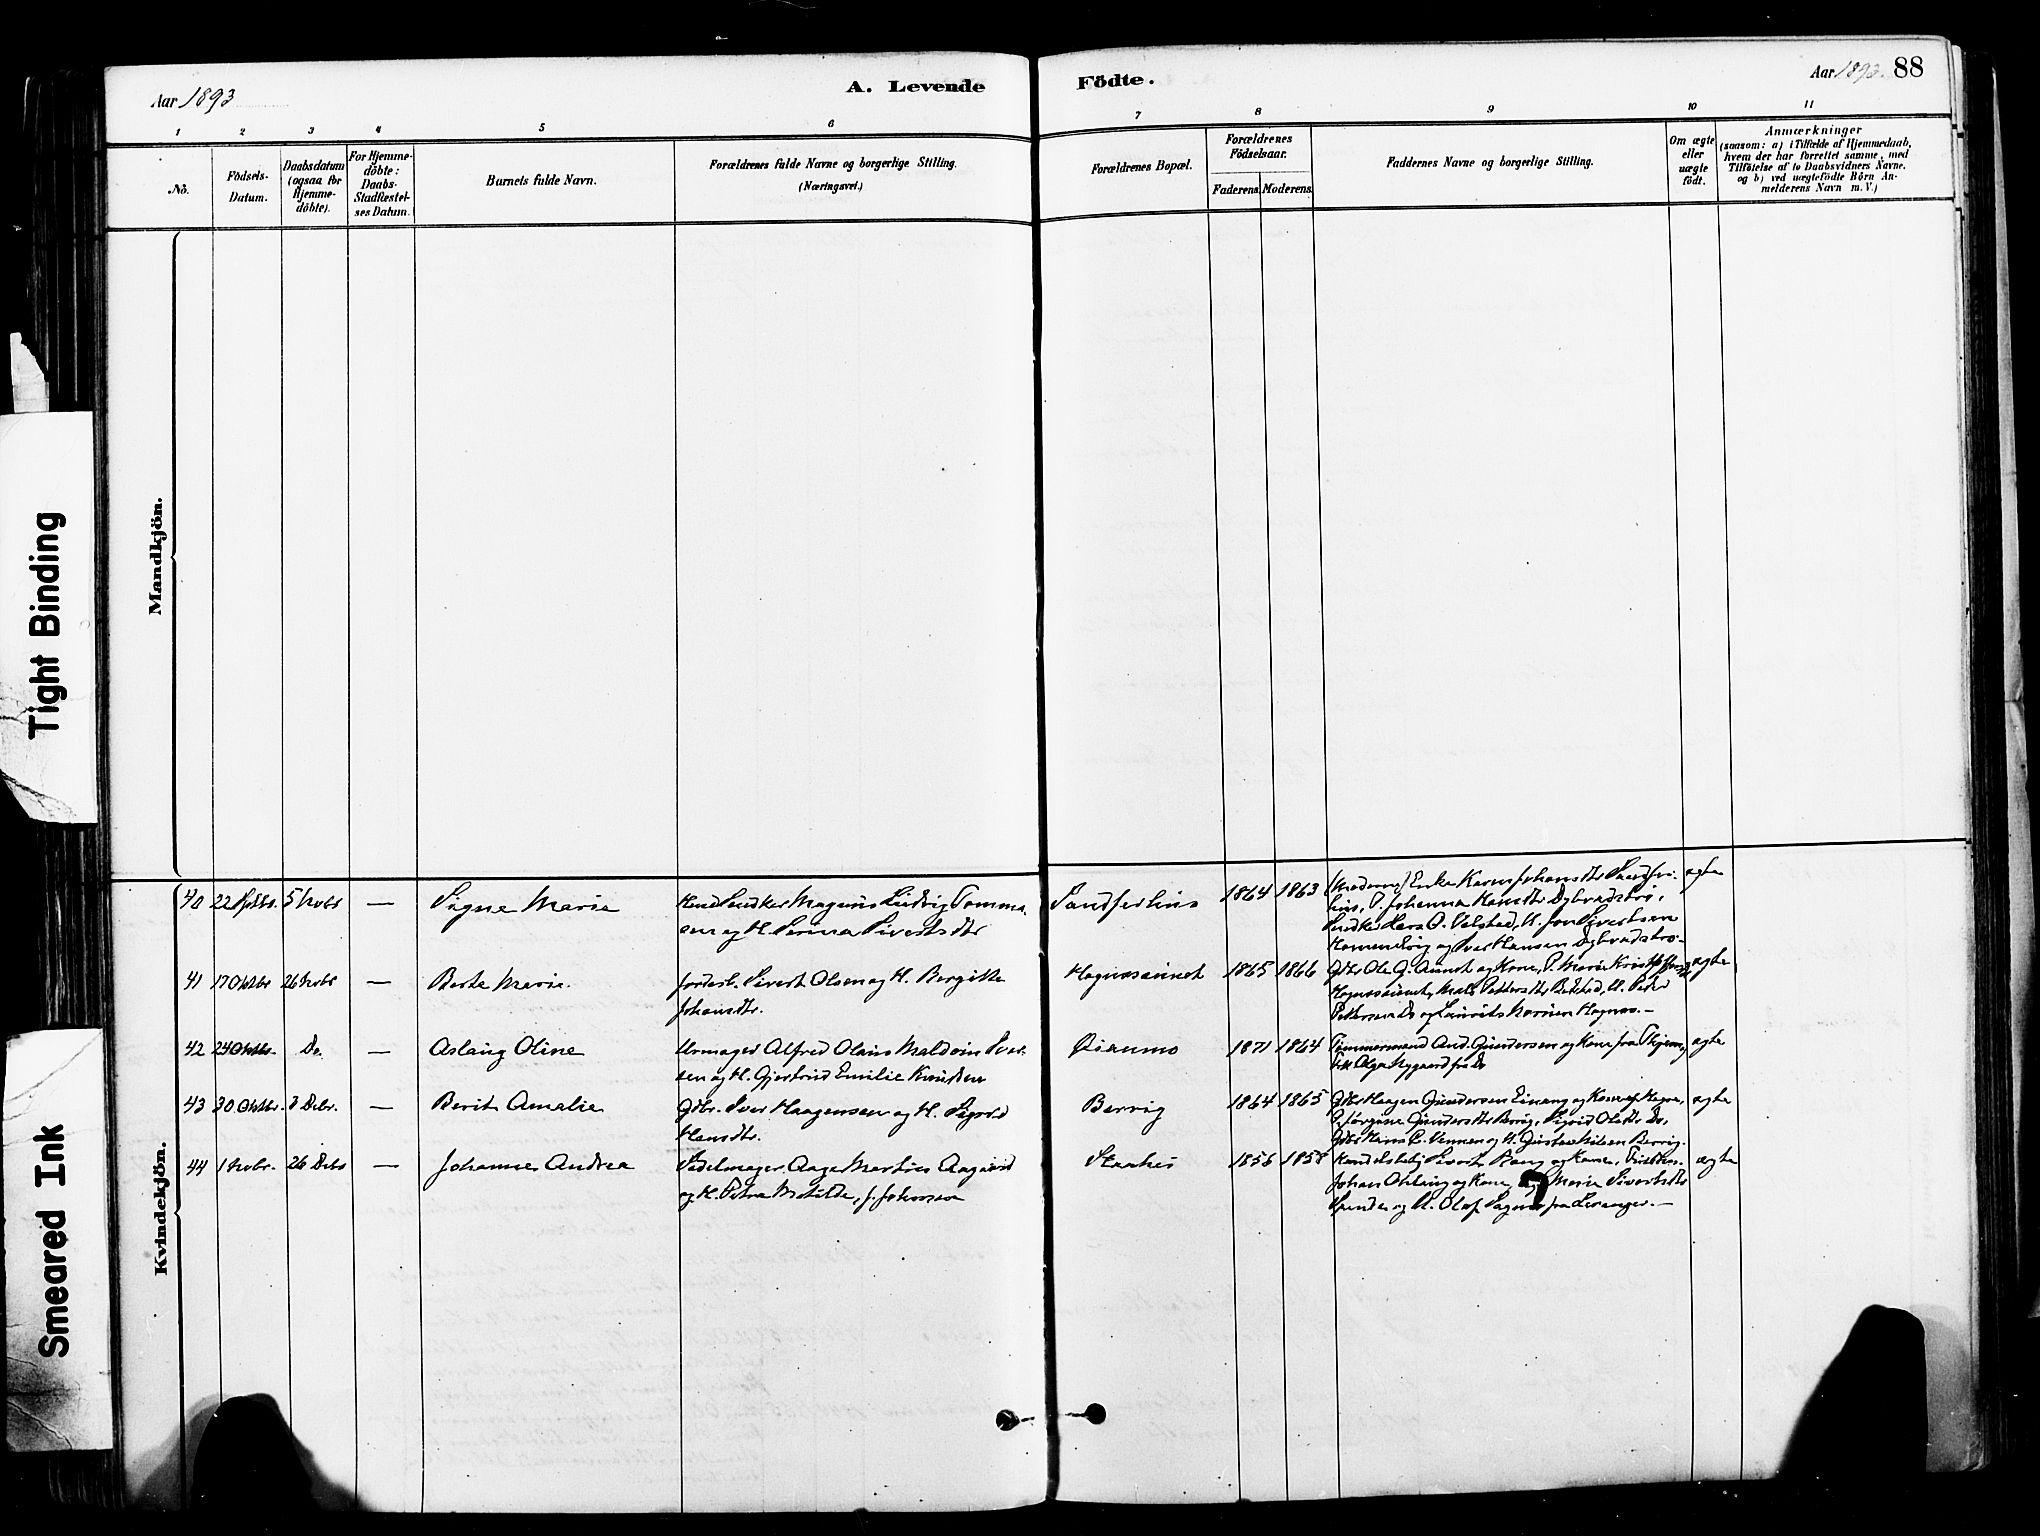 Aar 1893
A. Levende
Födte.
Aar 1893. 88
1 2 3 4 5 6 7 8 9 10 11
No.
Födsels-
Datum.
Daabsdatum
(ogsaa for
Hjemme-
döbte).
For Hjemme-
döbte:
Daabs-
Stadfæstel-
ses Datum.
Barnets fulde Navn.
Forældrenes fulde Navne og borgerlige Stilling.
(Næringsvei.)
Forældrenes Bopæl.
Forældrenes
Födselsaar.
Faderens. Moderens.
Faddernes Navne og borgerlige Stilling.
Om ægte
eller
uægte
födt.
Anmærkninger
(saasom: a) i Tilfælde af Hjemmedaab,
hvem der har forrettet samme, med
Tilföielse af to Daabsvidners Navne,
og b) ved uægtefödte Börn An-
melderens Navn m. V.)
Mandkjön.
Kvindekjön.
Tight Binding
Smeared Ink
40 5 Novbr — Signe Marie Magnus Ludvig Tomma-
sen og H. Serina Sivertsdtr
Sandferhus 1864 1863 (Moderen) Enke Karen Johansdtr
P. Johanna Hansdtr
O. Velstad, U. Jon Sivertsen
og Iver Hansen
ægte
41 17 Oktbr 26 Novbr — Berte Marie. Sivert Olsen og H. Bergitte
Johansdtr.
Hognesaunet 1865 1866 Gdbr Ole G. Aunet og Kone, P. Marie
Pettersdtr U. Peder
Pettersen Do og
ægte
42 24 Oktbr. Do. — Aslaug Oline Urmager Alfred Olaus Iver-
sen og H. Gjertrud Emilie Knudsen
1871 1864 Tømmermand And. Gundersen og Kone fra
Olga Nygaard fra Do
ægte
43 30 Oktbr. 3 Debr. — Berit Amalie Gdbr. Iver Haagensen og H. Sigrid
Hansdtr.
Bervig 1864 1865 Gdbr Haagen Gundersen Einang og Kone
P. Jørgine Gundersdtr Bervig, Sigrid Olsdtr Do,
Gdbr Hans L. Vennen og U. Gustav Nilsen Bervig.
ægte
44 1 Novbr. 26 Debr — Johanne Andrea Sadelmager Aage Martin Aagaard
og H. Petra Matilde, f. Johnsen
1856 1858 Handelsbetj Sivert Bang og Kone,
Johan Ohlsing og Kone, Marie Sivertsdtr
og U. Olaf fra Levanger. —
ægte